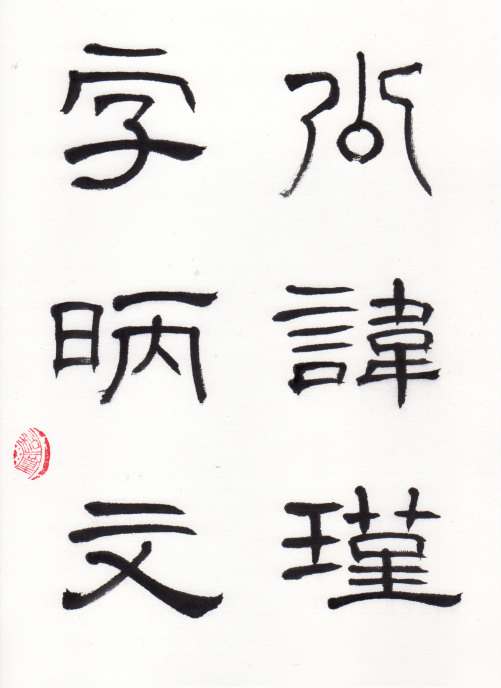 公諱瑾
字昞文